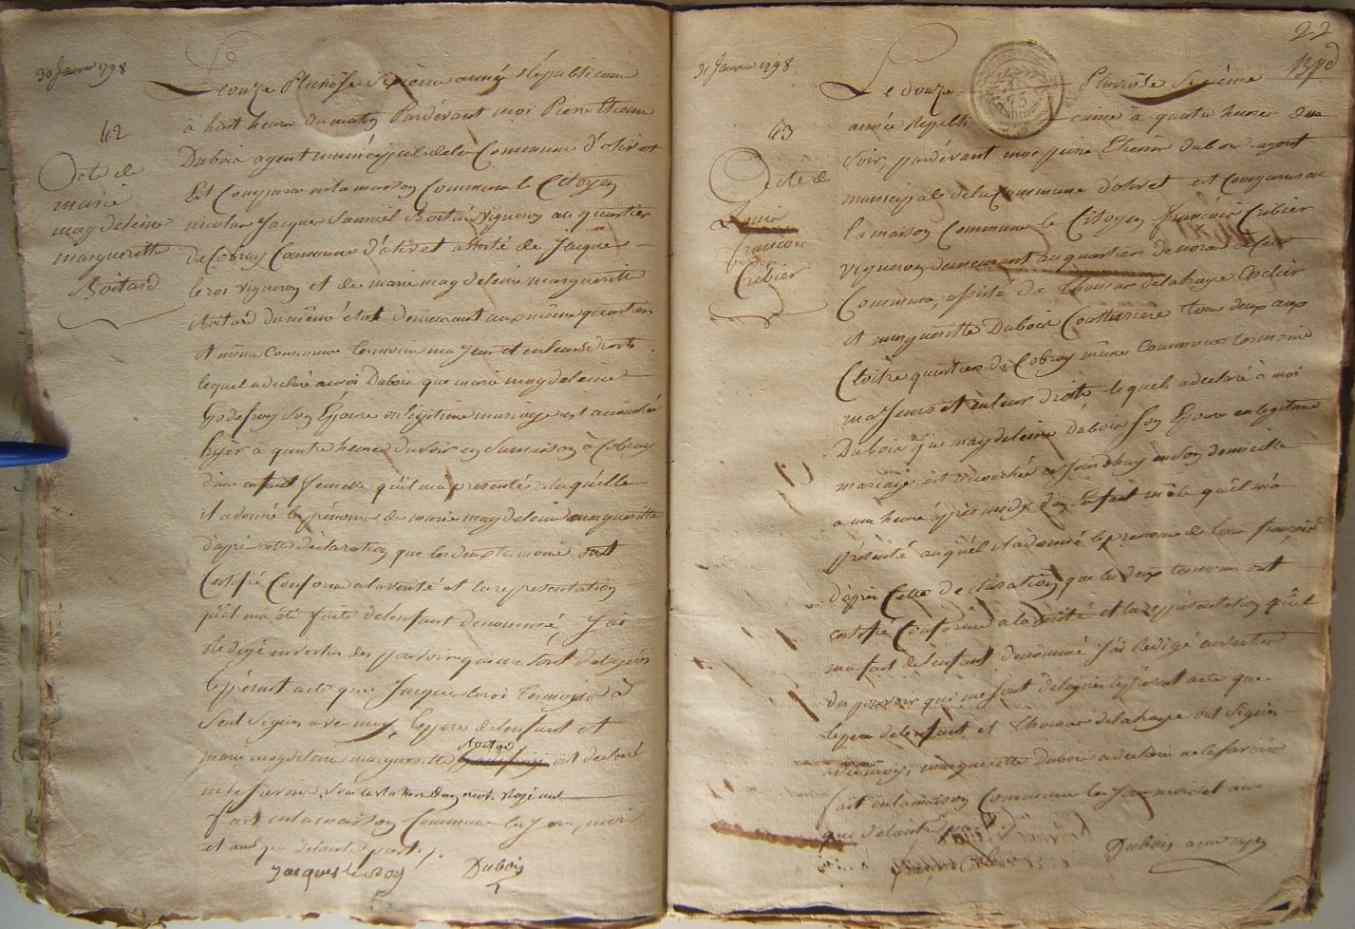 30 Janvier 1798
42
Acte de
marie
magdeleine
marguerite
Boitard
Le onze Pluviôse Sixième année Républicaine
à huit heures du matin Pardevant moi Pierre Etienne
Dubois agent municipal de la Commune d'olivet
Est Comparu en la maison Commune le Citoyen
nicolas Jacques Samuel Boitard vigneron au quartier
de Cobray Commune d'olivet assisté de Jacques
leroi vigneron et de marie magdeleine marguerite
Boitard du même état demeurant aux mêmes quartier
et même Commune temoins majeurs et en leurs droits
lequel a declaré a moi Dubois que marie magdeleine
Godefroy Son Epouse en légitime mariage est accouchée
hyer à quatre heures du soir en Sa maison à Cobray
d'un enfant femelle qu'il m'a presenté et laquelle
il a donné les prénoms de marie magdeleine marguerite
d'après cette declaration que les deux temoins ont
Certifié Conforme a la verité et la representation
qu'il m'a été faite de l'enfant denommé, J'ai
redigé en vertu des pouvoirs qui me Sont delegués
le présent acte que Jacques leroi temoin a
Seul Signé avec moi, le père de l'enfant et
marie magdeleine marguerite Boitard ont declaré
ne le Savoir
fait en la maison Commune les Jour, mois
et an que dessus
Jacques le Roy
Dubois
22
31 Janvier 1798
43
Acte de
Louis
francois
Cribier
Le douze Pluviôse Sixième
année Républicaine à quatre heures du
Soir, pardevant moi pierre Etienne Dubois agent
municipal de la Commune d'olivet est comparu en
la maison Commune le Citoyen françois Cribier
vigneron demeurant au quartier de
Commune, assisté de Thomas delahaye
et marguerite Dubois Couturiere tous deux aux
Cloitre quartier de Cobray même Commune temoins
majeurs et en leur droits lequel a declaré a moi
Dubois que magdeleine dubois Son Epouse en légitime
mariage est accouchée aujourdhuy en Son domicille
a une heure après midy d'un Enfant mâle qu'il m'a
présenté auquel il a donné le prenoms de Louis françois
d'après Cette declaration que les deux temoins ont
certifié Conforme a la verité et la representation qu'il
m'a fait de l'enfant denommé J'ai redigé en vertu
des pouvoir qui me sont delegués le present acte que
le pere de l'enfant, et Thomas delahaye ont Signé
avec moi, marguerite Dubois a declaré ne le Savoir
fait en la maison Commune les Jour mois et an
que dessus
Dubois